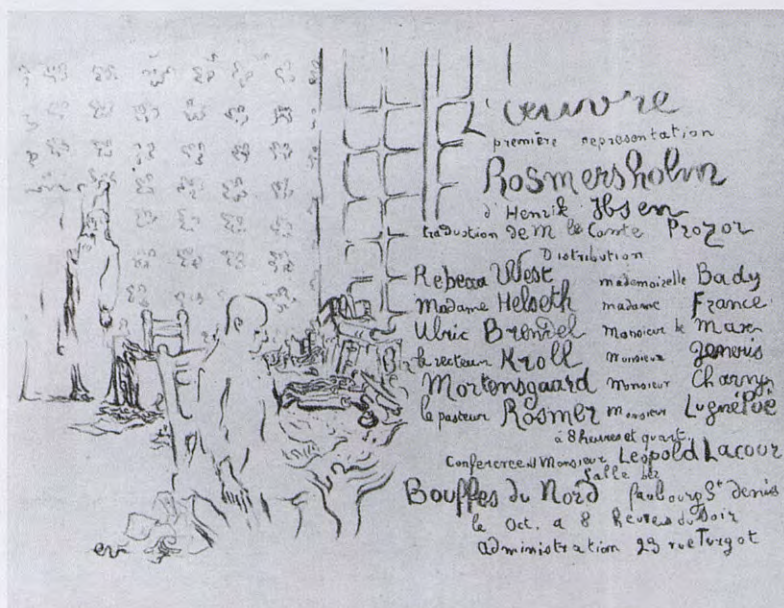 L'œuvre
première representation
Rosmersholm
d'Henrik Ibsen
traduction de M le Comte Prozor
Distribution
Rebecca West mademoiselle Bady
Madame Helseth madame France
Ulric Brendel Monsieur de Max
le recteur Kroll Monsieur
Mortensgaard Monsieur Charny
le pasteur Rosmer Monsieur Lugné Poë
à 8 heures et quart.
Conference Monsieur Leopold Lacour
Salle des
Bouffes du Nord faubourg St denis
le Oct. a 8 heures du Soir
administration 23 rue Turgot
ev